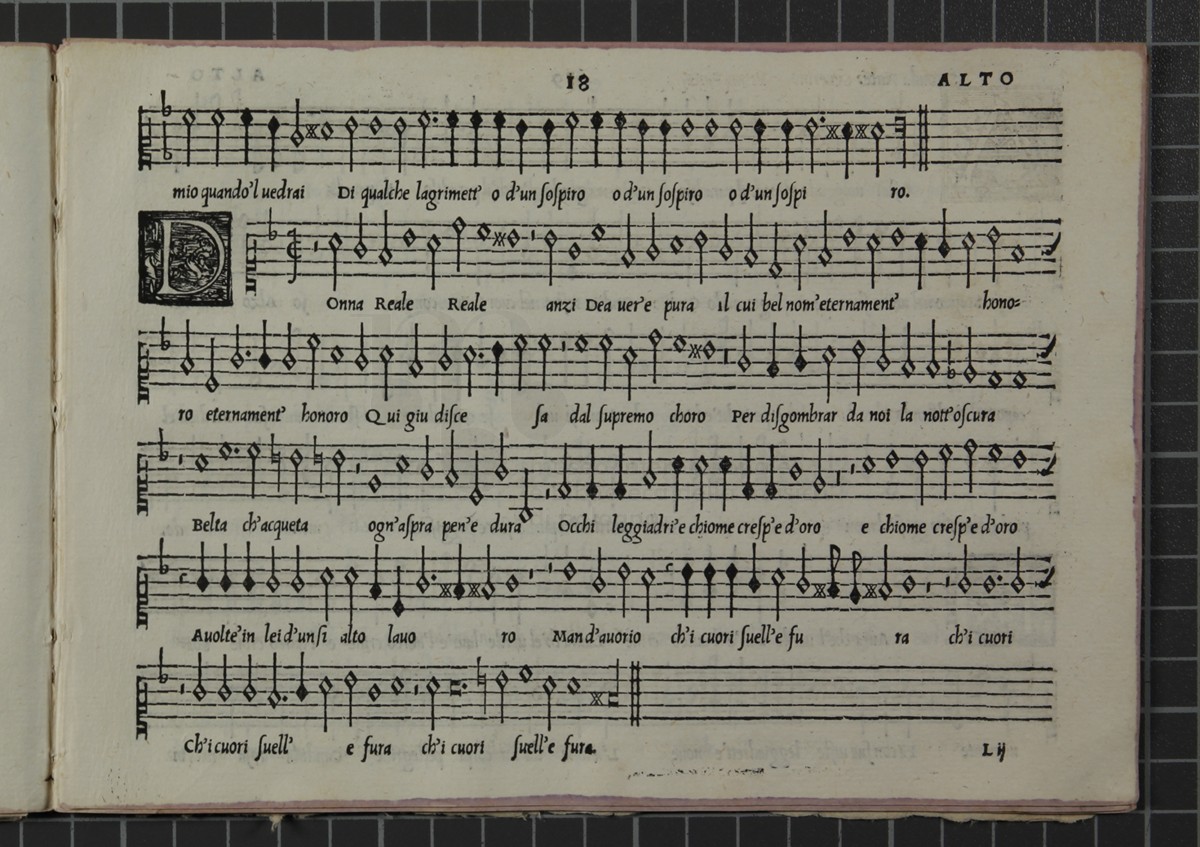 18 ALTO
mio quando'l uedrai Di qualche lagrimett' o d'un ſoſpiro o d'un ſoſpiro o d'un ſoſpi ro.
D Onna Reale Reale anzi Dea uer'e pura il cui bel nom'eternament' hono=
ro eternament' honoro Qui giu diſce ſa dal ſupremo choro Per diſgombrar da noi la nott'oſcura
Belta ch'acqueta ogn'aſpra pen'e dura Occhi leggiadri'e chiome creſp'e d'oro e chiome creſp'e d'oro
Auolte'in lei d'un ſi alto lauo ro Man d'auorio ch'i cuori ſuell'e fu ra ch'i cuori
Ch'i cuori ſuell' e fura ch'i cuori ſuell'e fura.
L ij